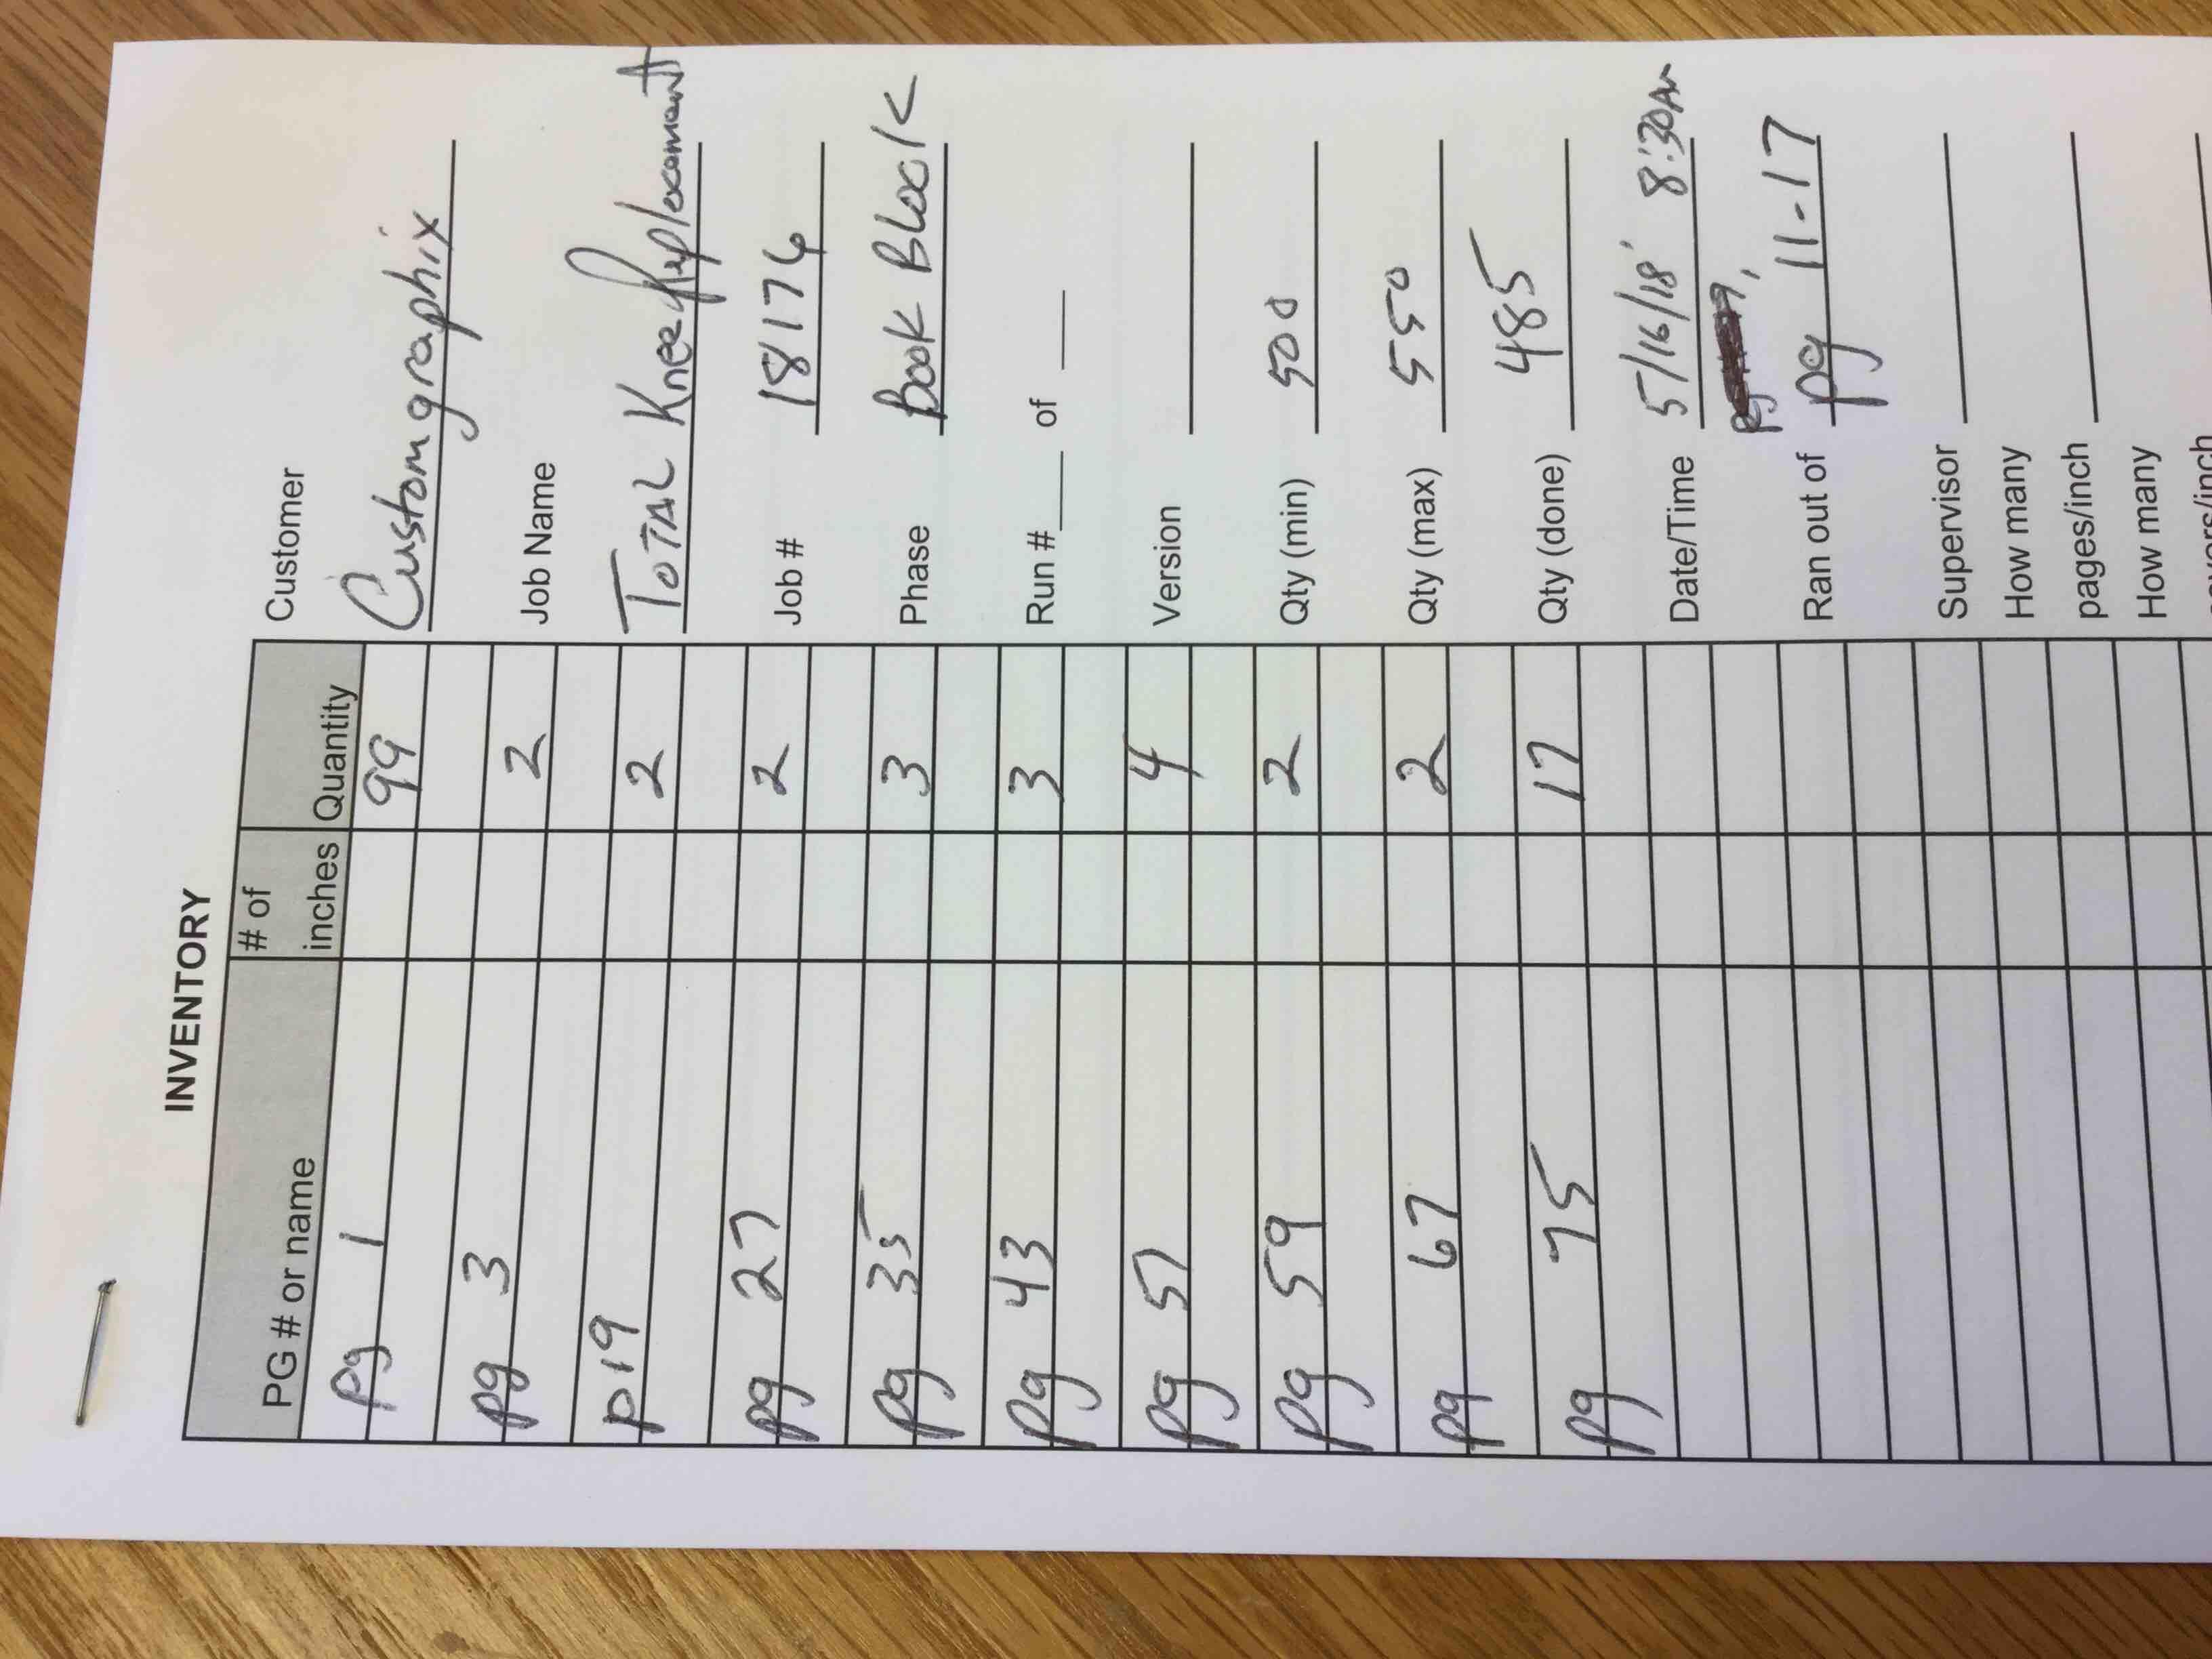 INVENTORY
PG # or name # of inches Quantity
pg 1 99
pg 3 2
p19 2
pg 27 2
pg 35 3
pg 43 3
pg 51 4
pg 59 2
pg 67 2
pg 75 17
Customer
Customgraphix
Job Name
TOTAL Knee Replacement
Job # 18176
Phase Book Block
Run # ____ of ____
Version
Qty (min) 500
Qty (max) 550
Qty (done) 485
Date/Time 5/16/18 8:30AM
Ran out of pg 11-17
Supervisor
How many
pages/inch
How many